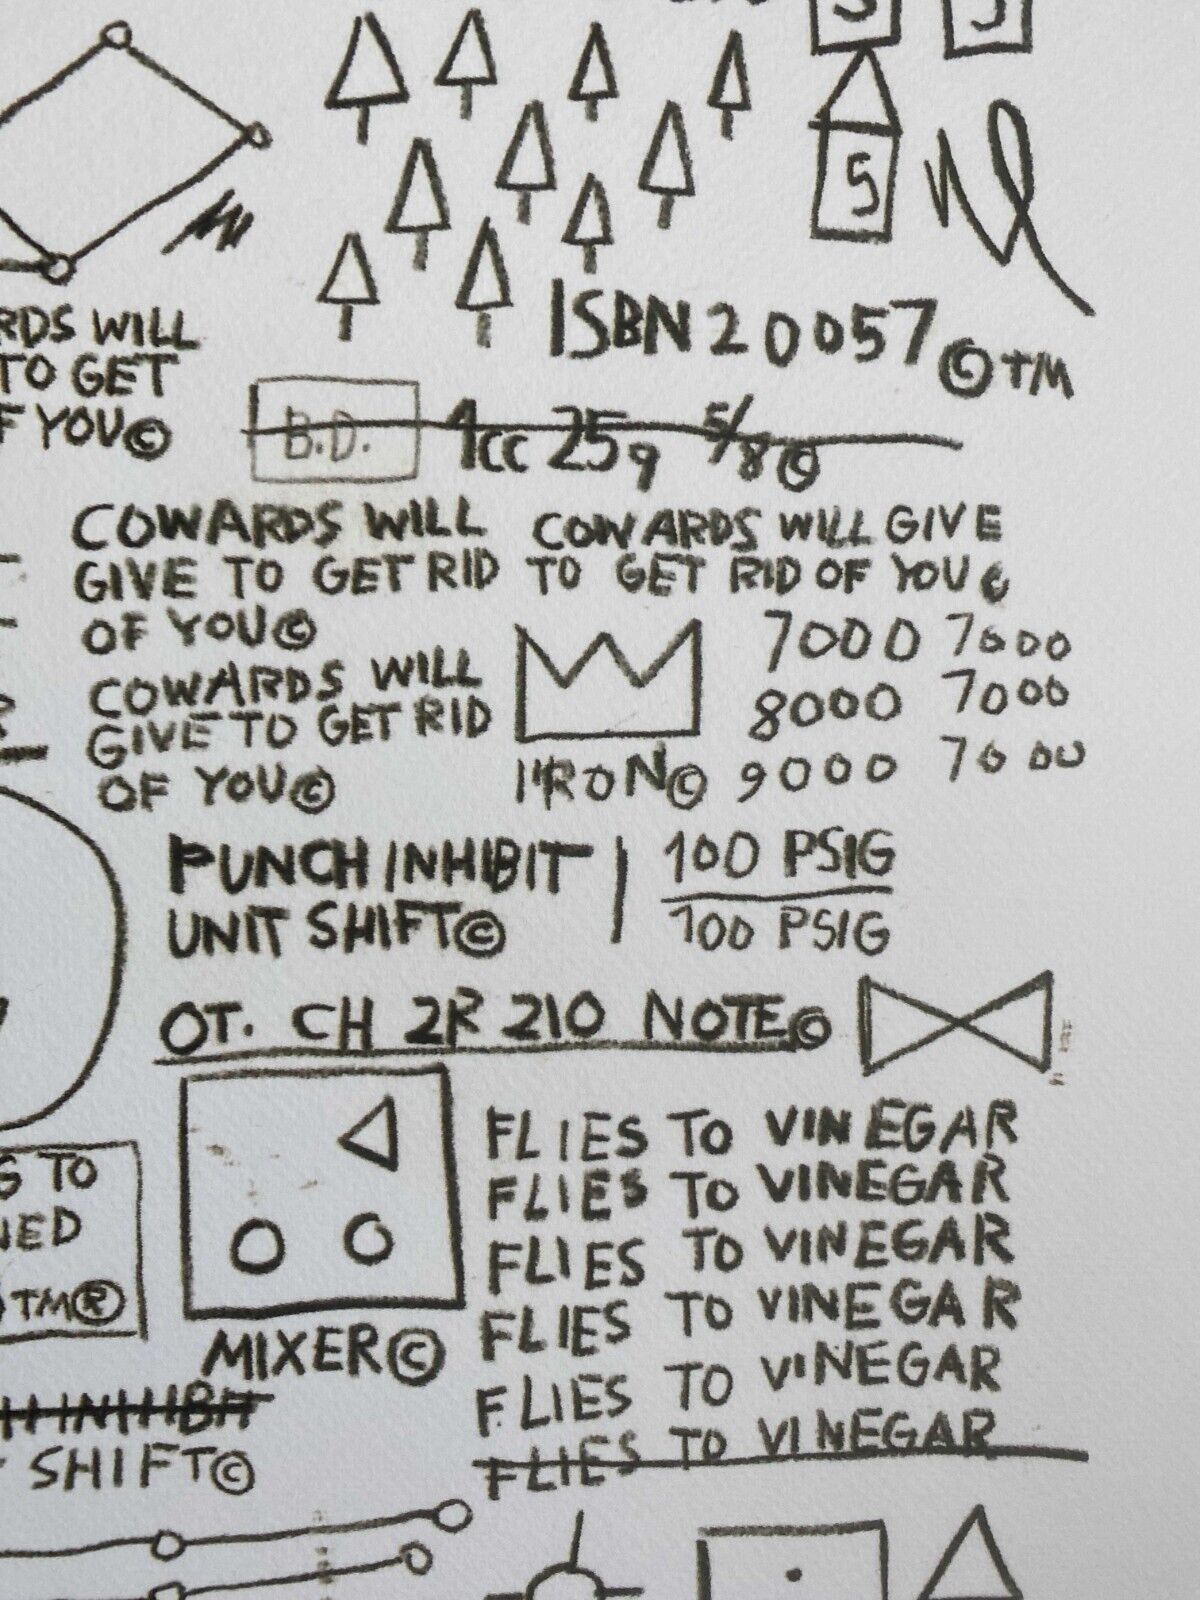 S J
S
ISBN 20057 © TM
RDS WILL
TO GET
F YOU©
B.D. 1cc 25g 5/8©
COWARDS WILL
GIVE TO GET RID
OF YOU©
COWARDS WILL GIVE
TO GET RID OF YOU ©
COWARDS WILL
GIVE TO GET RID
OF YOU©
IRON©
7000 7000
8000 7000
9000 7000
PUNCH INHIBIT
UNIT SHIFT©
100 PSIG
100 PSIG
OT. CH 2R 210 NOTE©
G TO
NED
TM®
MIXER©
FLIES TO VINEGAR
FLIES TO VINEGAR
FLIES TO VINEGAR
FLIES TO VINEGAR
FLIES TO VINEGAR
FLIES TO VINEGAR
H INHIBIT
SHIFT©